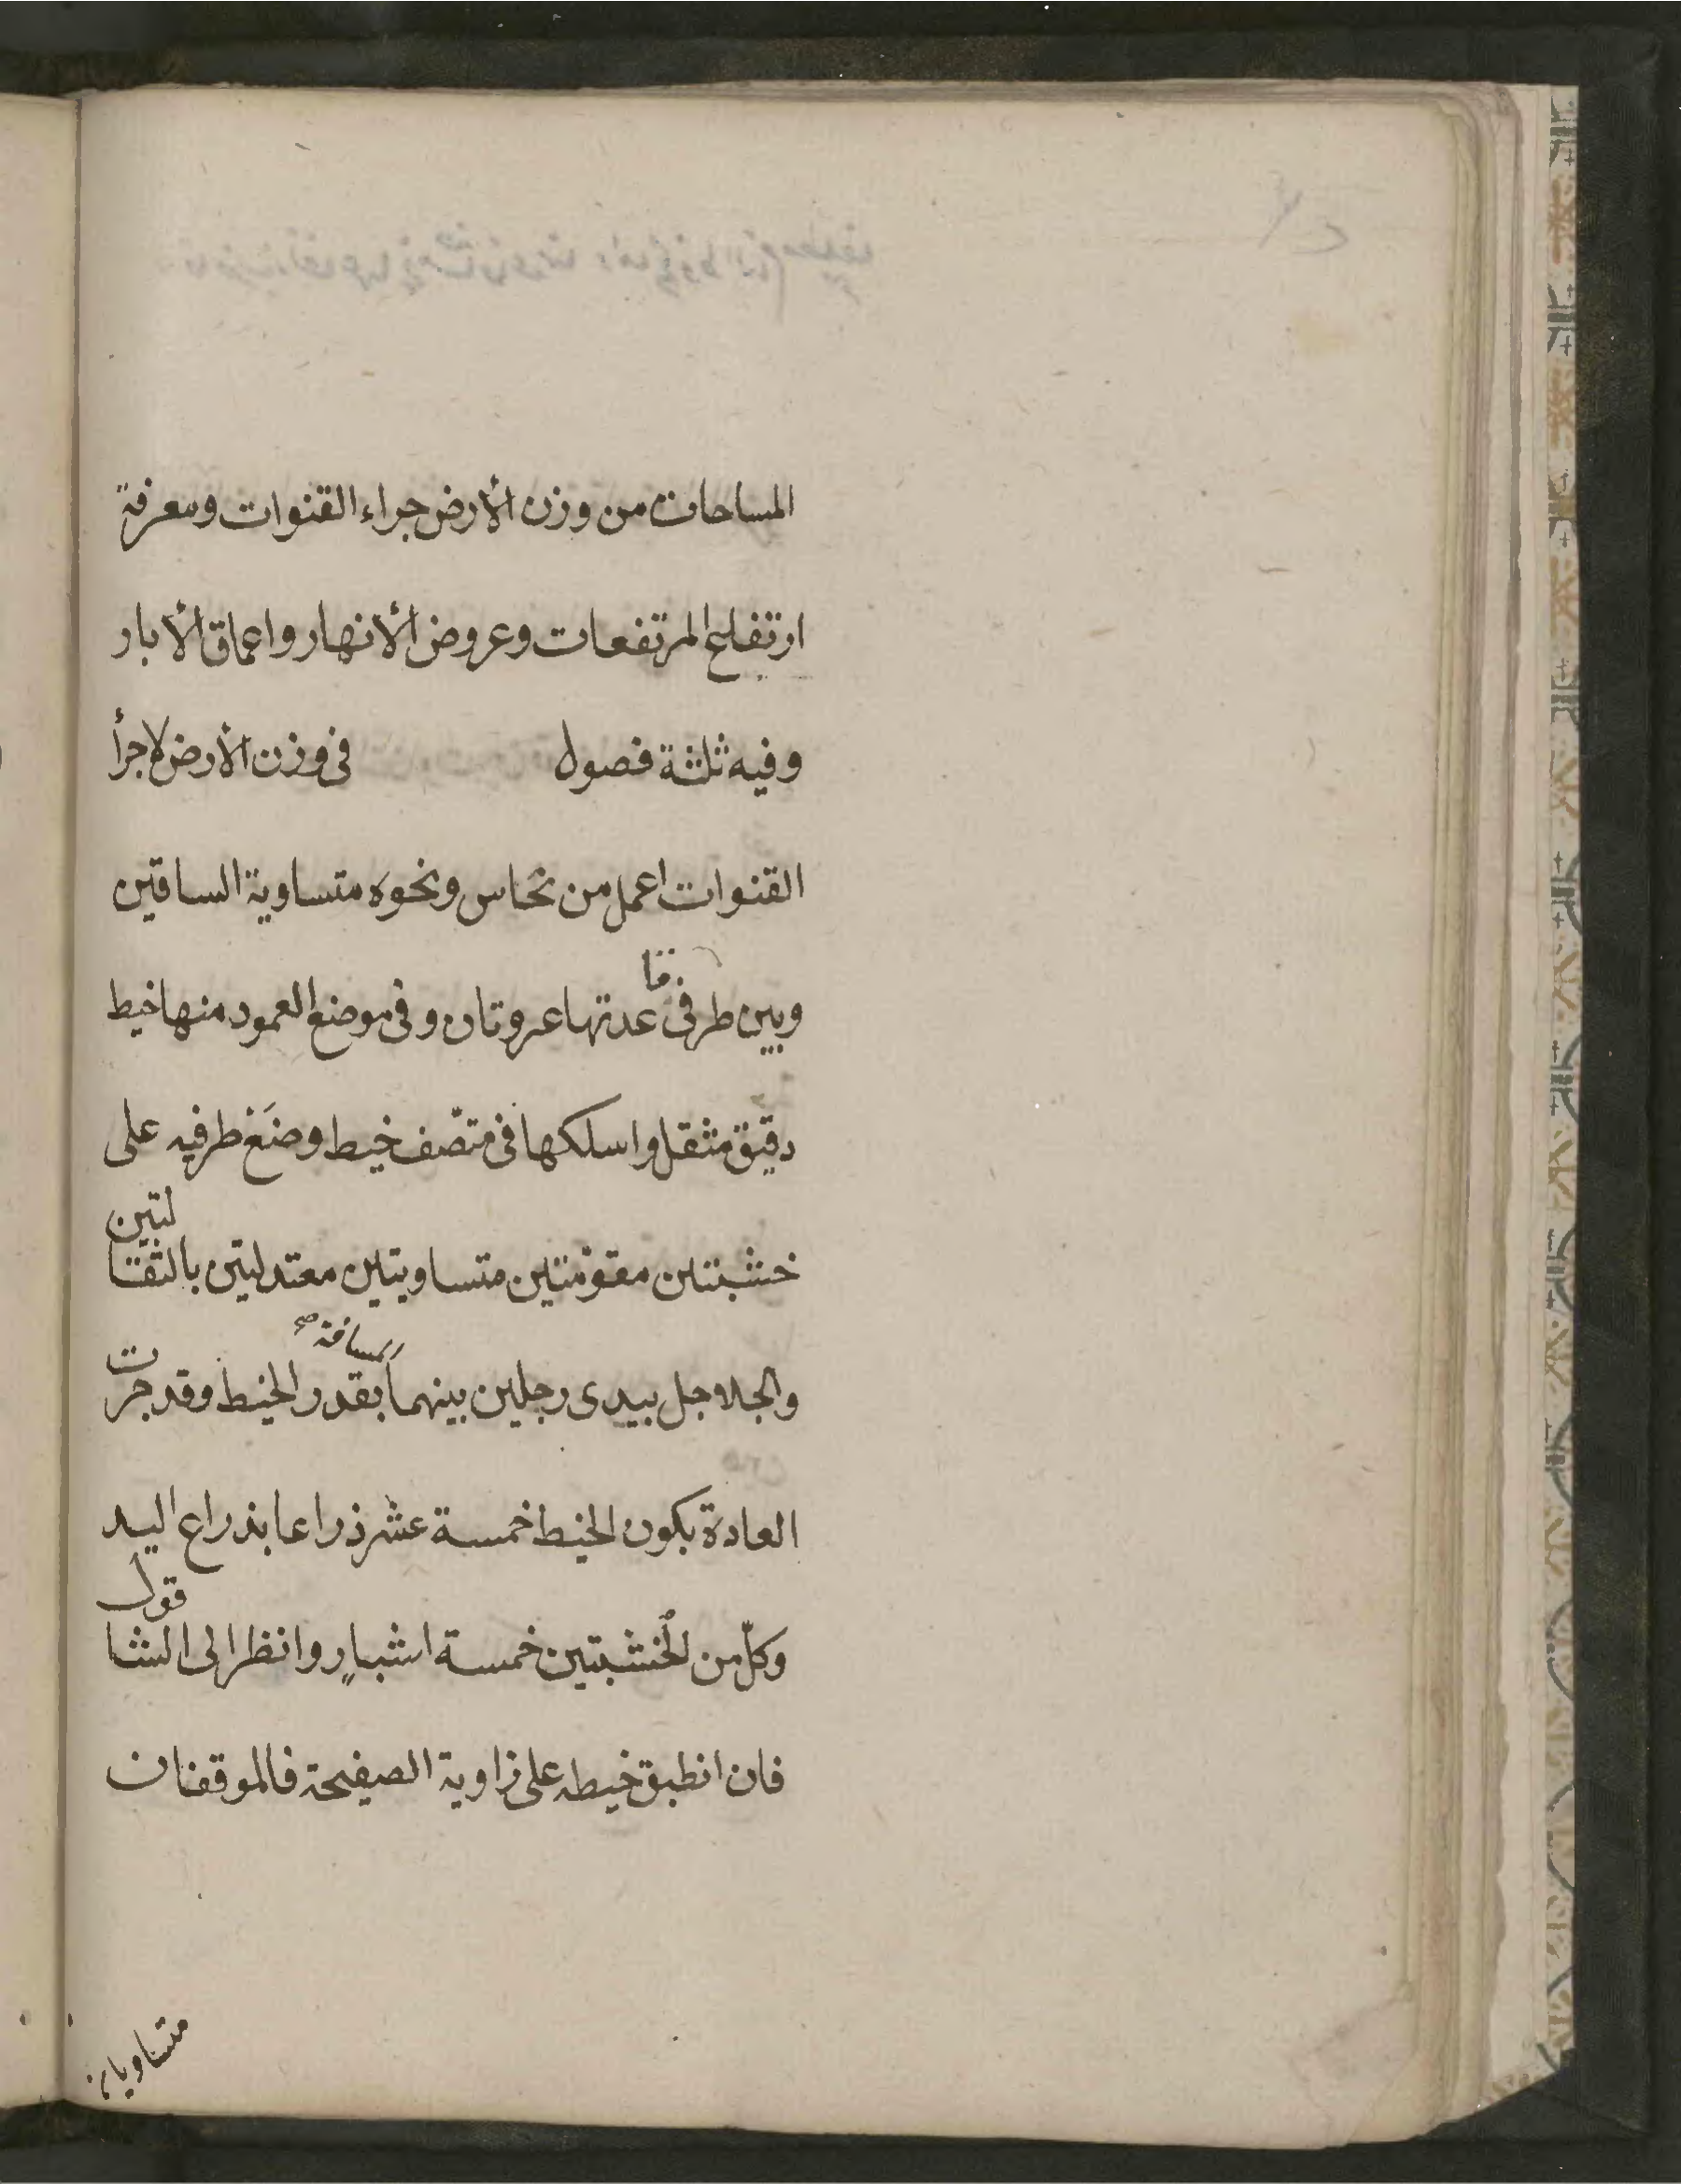 المساحات من وزن الأرض جراء القنوات ومعرفة
ارتفاع المرتفعات وعروض الأنهار واعماق الأبار
وفيه ثلثة فصول في وزن الأرض لاجرأ
القنوات اعمل من نحاس ونحوه متساوية الساقين
وبين طرفي قا عدتها عروتان وفي موضع العمود منها خيط
دقيق مثقل واسلكها في متصف خيط وضَع طرفيه على
خشبتين مقومتين متساويتين معتدلتين بالثقتا لتين
والجلاجل بيدى رجلين بينهما المسافة صح بقدر الخيط وقد جرت
العادة بكون الخيط خمسة عشر ذراعا بذراع اليد
وكلّ من الخشبتين خمسة اشبارٍ وانظر الى الشا قول
فان انطبق خيطه على زاوية الصفيحة فالموقفان
متساويان